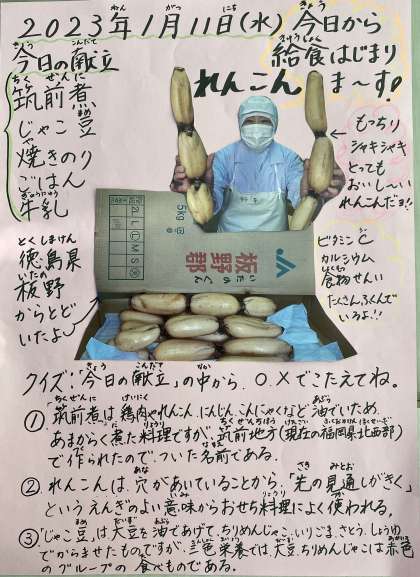 2023年1月11日(水)今日から
給食はじまり
ま〜す!
れんこん
今日の献立
筑前煮
じゃこ豆
焼きのり
ごはん
牛乳
もっちり
シャキシャキ
とっても
おいし〜い
れんこんだヨ!!
とくしまけん
徳島県
いたの
板野
からとど
いたよ
5kg
2L L M S
いたのぐん
板野郡
JA
ビタミンC
カルシウム
食物せんい
たくさんふくんで
いるよ!!
クイズ:「今日の献立」の中から、○、×でこたえてね。
①「筑前煮は鶏肉やれんこん、にんじん、こんにゃくなど油でいため、
あまからく煮た料理ですが、筑前地方(現在の福岡県北西部)
で作られたので、ついた名前である。
②れんこんは、穴があいていることから、「先の見通しがきく」
というえんぎのよい意味からおせち料理によく使われる。
③「じゃこ豆」は大豆を油であげて、ちりめんじゃこ・いりごま、さとう、しょうゆ
でからませたものですが、三色栄養では、大豆、ちりめんじゃこは赤色
のグループの食べものである。